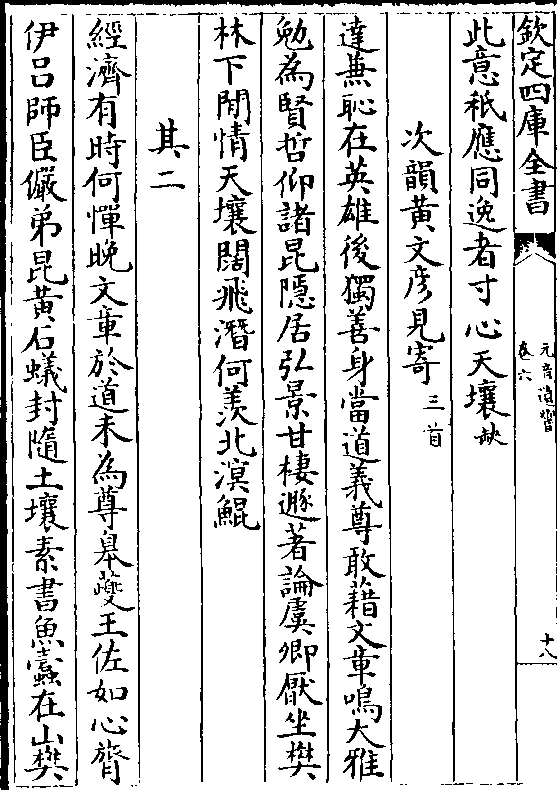 欽定四庫全書
元音遺響
卷六
十八
此意秪應同逸者寸心天壤缺
次韻黃文彥見寄三首
達兼恥在英雄後獨善身當道義尊敢藉文章鳴大雅
勉為賢哲仰諸昆隱居弘景甘棲遯著論虞卿厭坐樊
林下閒情天壤闊飛潛何羨北溟鯤
其二
經濟有時何憚晚文章於道未為尊皐夔王佐如心膂
伊吕師臣儼弟昆黃石蟻封隨土壤素書魚蠹在山樊